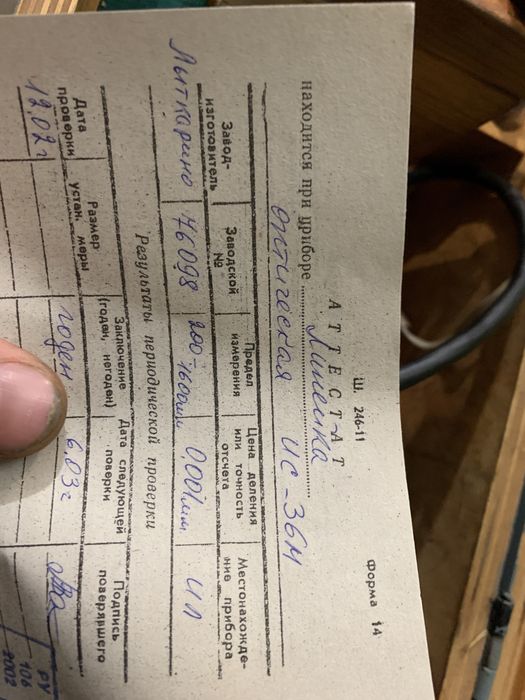 Форма 14
Ш. 246-11
АТТЕСТАТ
находится при приборе Линейка
оптическая ИС-36М
Завод-изготовитель
Заводской №
Предел измерения
Цена деления или точность отсчета
Местонахождение прибора
Лыткарино
76098
200-1600мм
0.001мм
ИЛ
Результаты периодической проверки
Дата проверки
Размер устан. меры
Заключение (годен, негоден)
Дата следующей поверки
Подпись поверявшего
12.02г
годен
6.03г
РУ
106
2002